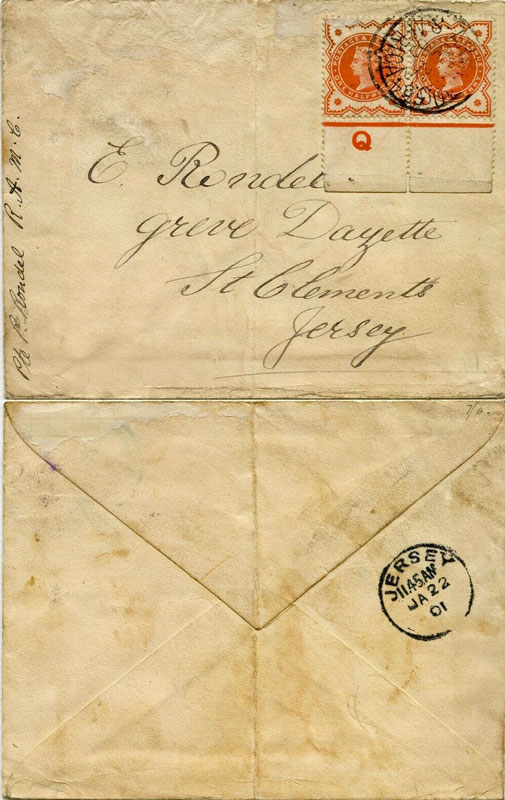 POSTAGE &
HALFPENNY
Q
E. Rondel
Greve Dazette
St Clements
Jersey
Pte P. Rondel R. A. M. C.
7/6.
JERSEY
11.45AM
JA 22
01